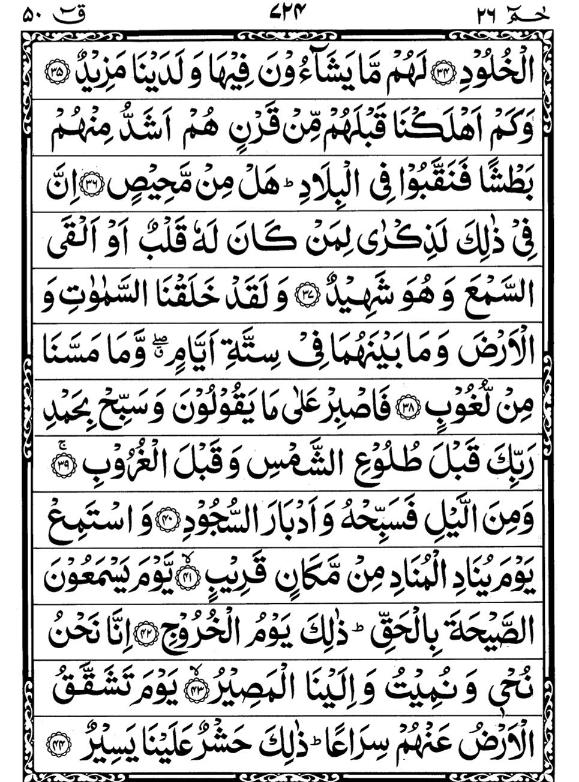 حٰمٓ ٢٦ ٧٢٤ قٓ ٥٠
الْخُلُوْدِ ﴿۳۴﴾ لَهُمْ مَّا يَشَآءُوْنَ فِيْهَا وَلَدَيْنَا مَزِيْدٌ ﴿۳۵﴾
وَكَمْ اَهْلَكْنَا قَبْلَهُمْ مِّنْ قَرْنٍ هُمْ اَشَدُّ مِنْهُمْ
بَطْشًا فَنَقَّبُوْا فِى الْبِلَادِ ؕ هَلْ مِنْ مَّحِيْصٍ ﴿۳۶﴾ اِنَّ
فِىْ ذٰلِكَ لَذِكْرٰى لِمَنْ كَانَ لَهٗ قَلْبٌ اَوْ اَلْقَى
السَّمْعَ وَهُوَ شَهِيْدٌ ﴿۳۷﴾ وَلَقَدْ خَلَقْنَا السَّمٰوٰتِ وَ
الْاَرْضَ وَمَا بَيْنَهُمَا فِىْ سِتَّةِ اَيَّامٍ ۖ وَّمَا مَسَّنَا
مِنْ لُّغُوْبٍ ﴿۳۸﴾ فَاصْبِرْ عَلٰى مَا يَقُوْلُوْنَ وَسَبِّحْ بِحَمْدِ
رَبِّكَ قَبْلَ طُلُوْعِ الشَّمْسِ وَقَبْلَ الْغُرُوْبِ ۚ ﴿۳۹﴾
وَمِنَ الَّيْلِ فَسَبِّحْهُ وَاَدْبَارَ السُّجُوْدِ ﴿۴۰﴾ وَاسْتَمِعْ
يَوْمَ يُنَادِ الْمُنَادِ مِنْ مَّكَانٍ قَرِيْبٍ ۙ ﴿۴۱﴾ يَّوْمَ يَسْمَعُوْنَ
الصَّيْحَةَ بِالْحَقِّ ؕ ذٰلِكَ يَوْمُ الْخُرُوْجِ ﴿۴۲﴾ اِنَّا نَحْنُ
نُحْىٖ وَنُمِيْتُ وَاِلَيْنَا الْمَصِيْرُ ۙ ﴿۴۳﴾ يَوْمَ تَشَقَّقُ
الْاَرْضُ عَنْهُمْ سِرَاعًا ؕ ذٰلِكَ حَشْرٌ عَلَيْنَا يَسِيْرٌ ﴿۴۴﴾